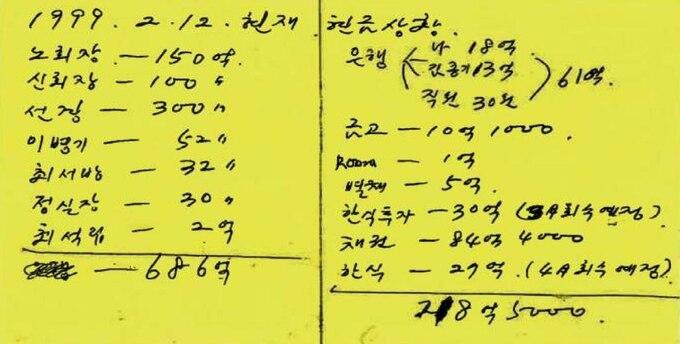 1999. 2. 12. 현재
노회장 — 150억.
신회장 — 100 〃
선경 — 300 〃
이병기 — 52 〃
최서방 — 32 〃
정실장 — 30 〃
최석림 — 2억
— 686억
현금상황.
은행 나 18억
13억
직원 30원
61억.
금고 — 10억 1000.
Room — 1억
별채 — 5억.
한식투자 — 30억 (3A회수예정)
채권 — 84억 4000
한식 — 27억. (4A회수예정)
218억 5000.